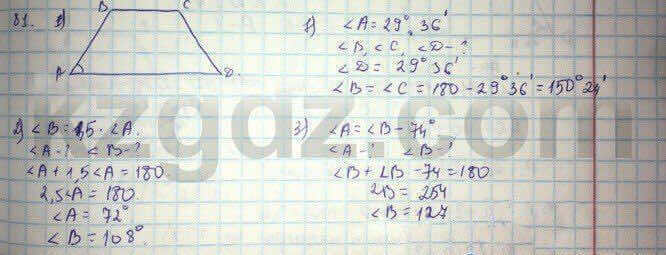 81. 1)
B C
A D.
1) <A = 29° 36'
<B, <C, <D - ?
<D = 29° 36'
<B = <C = 180 - 29° 36' = 150° 24'
2) <B = 1,5 · <A.
<A - ? <B - ?
<A + 1,5 <A = 180
2,5<A = 180
<A = 72°
<B = 108°
3) <A = <B - 74°
<A - ? <B - ?
<B + <B - 74 = 180
2B = 254
<B = 127
kzgdz.com